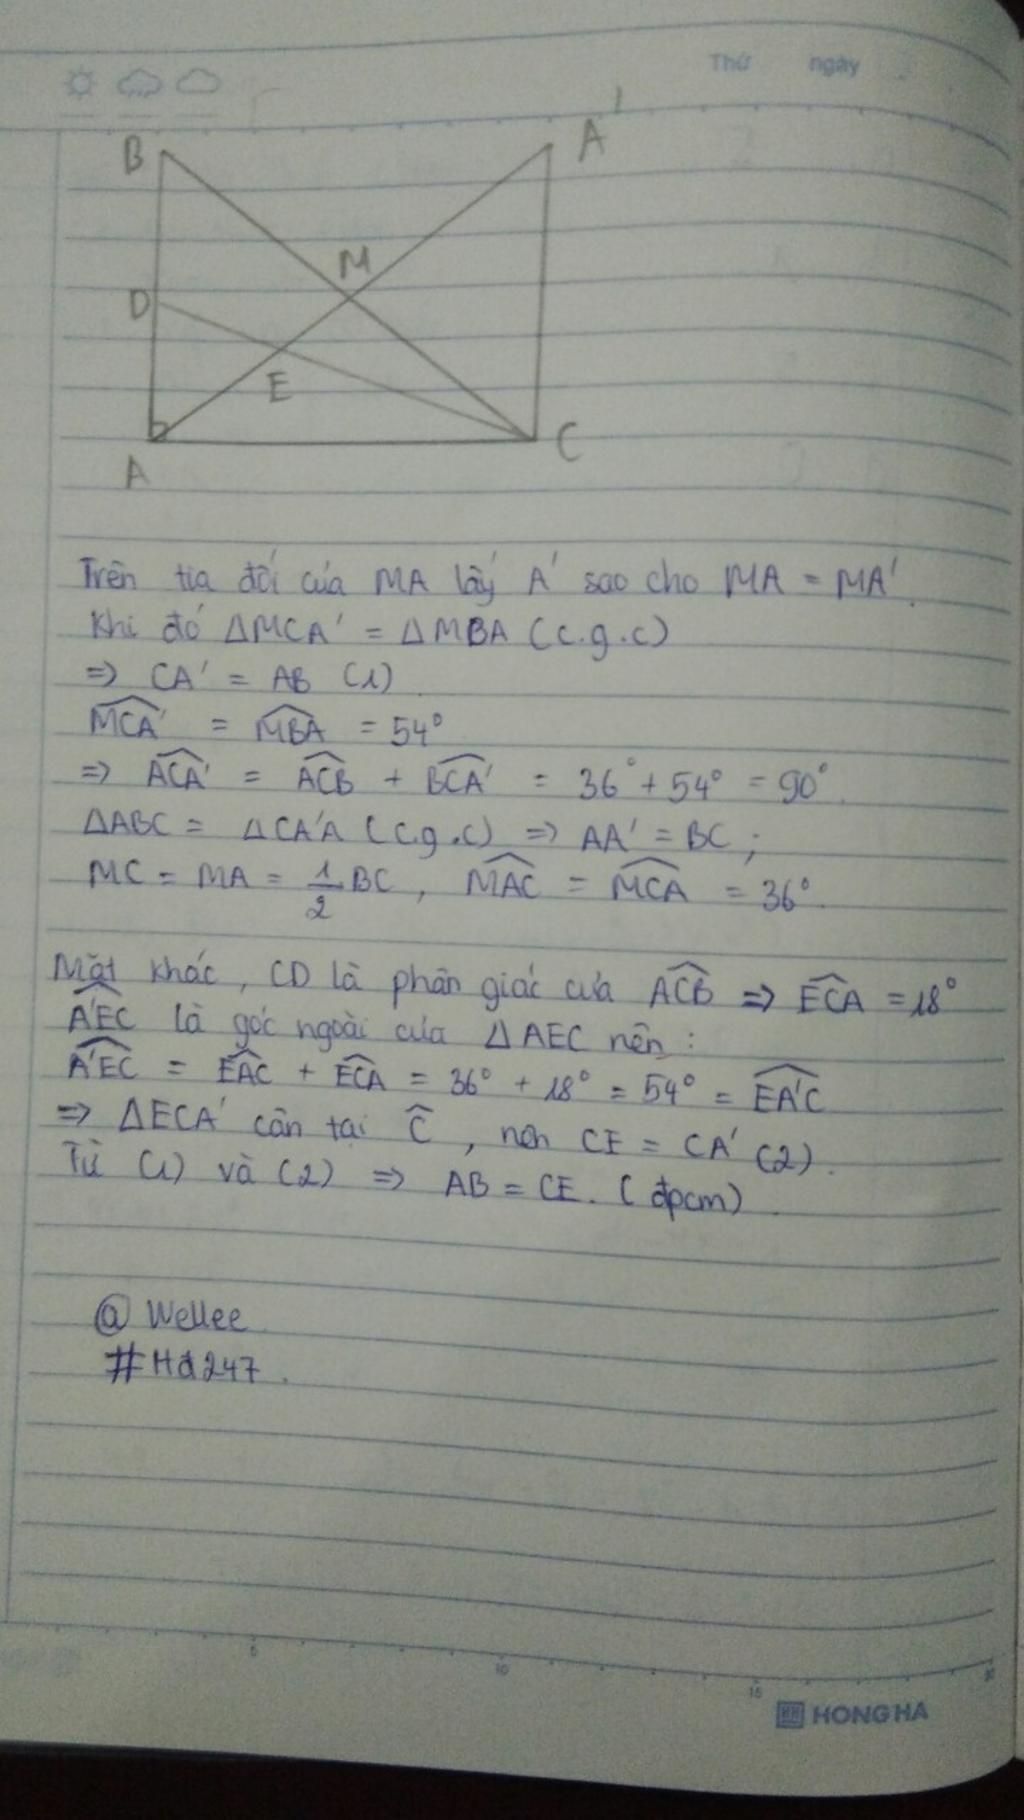 Thứ ngày
B
A'
M
D
E
A
C
Trên tia đối của MA lấy A' sao cho MA = MA'.
Khi đó ΔMCA' = ΔMBA (c.g.c)
=> CA' = AB (1)
\widehat{MCA'} = \widehat{MBA} = 54°
=> \widehat{ACA'} = \widehat{ACB} + \widehat{BCA'} = 36° + 54° = 90°.
ΔABC = ΔCA'A (c.g.c) => AA' = BC ;
MC = MA = 1/2 BC, \widehat{MAC} = \widehat{MCA} = 36°.
Mặt khác, CD là phân giác của \widehat{ACB} => \widehat{ECA} = 18°
\widehat{A'EC} là góc ngoài của ΔAEC nên :
\widehat{A'EC} = \widehat{EAC} + \widehat{ECA} = 36° + 18° = 54° = \widehat{EA'C}
=> ΔECA' cân tại \widehat{C}, nên CE = CA' (2).
Từ (1) và (2) => AB = CE. (đpcm)
@ Wellee
#Hđ247.
5 10 15
HONG HA